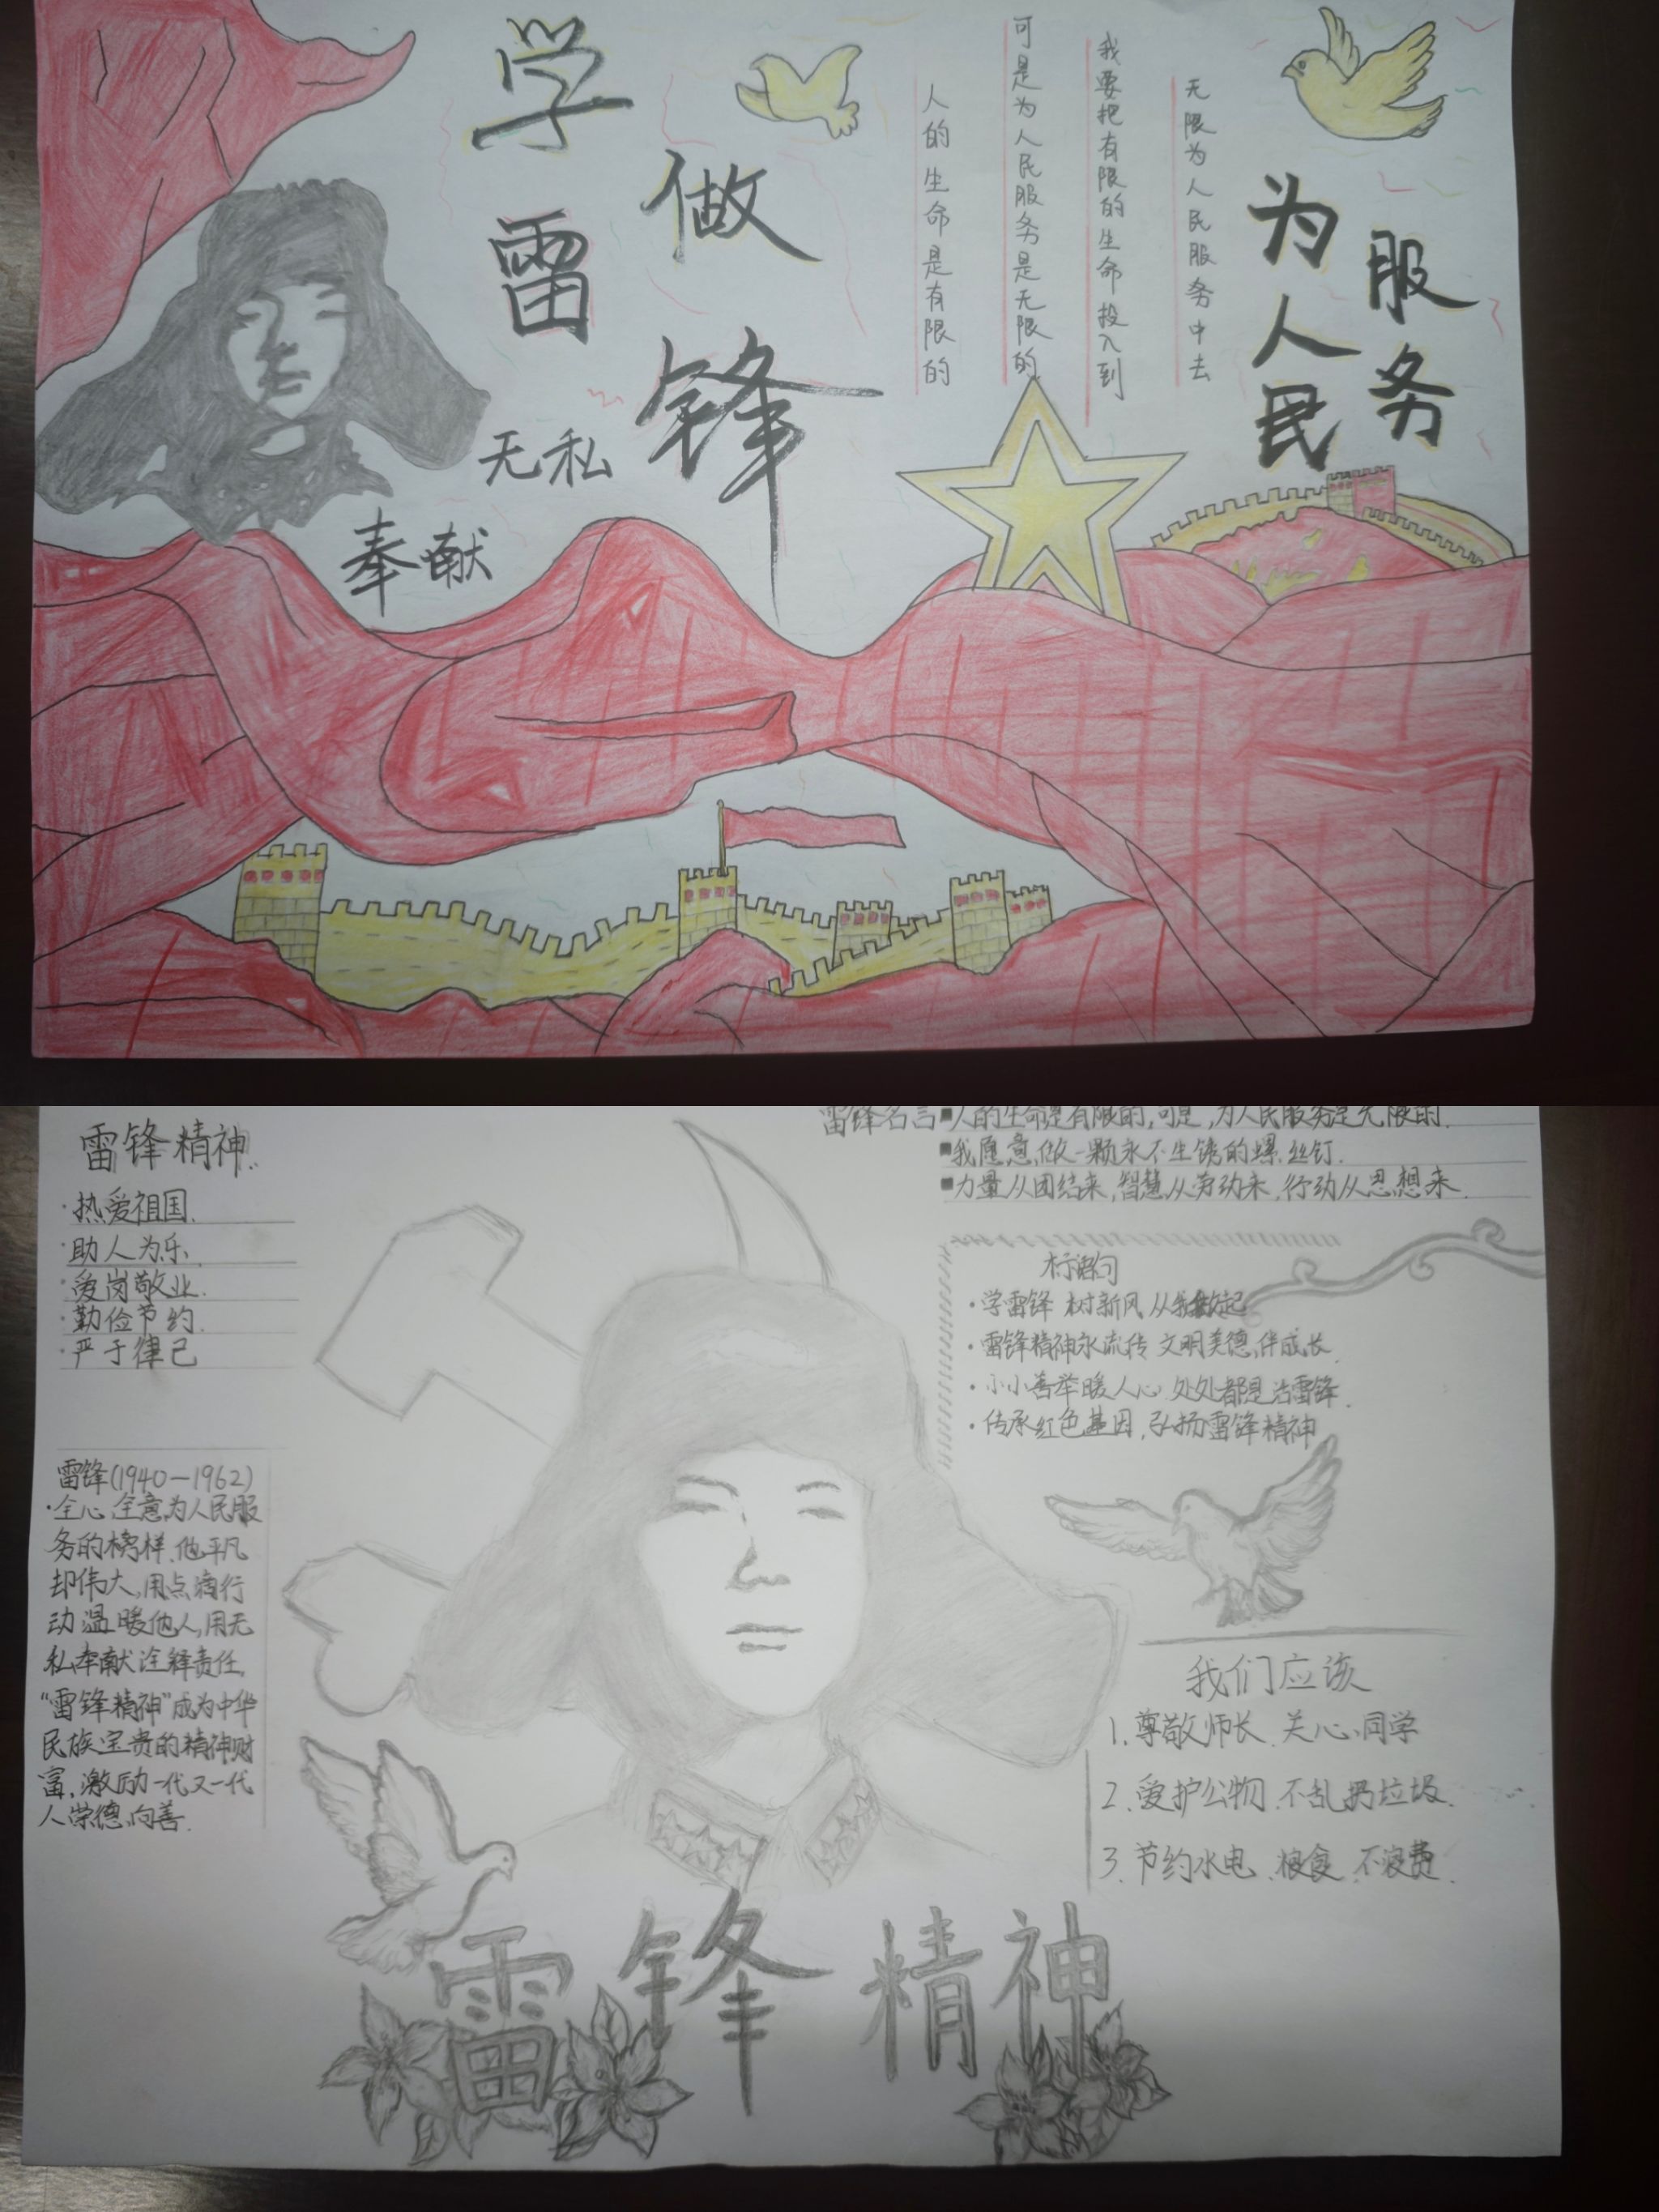 学雷
做锋
无私
奉献
人的生命是有限的
可是为人民服务是无限的
我要把有限的生命投入到
无限为人民服务中去
为人民
服务
雷锋精神.
·热爱祖国.
·助人为乐.
·爱岗敬业.
·勤俭节约.
·严于律己
雷锋(1940—1962)
·全心全意为人民服
务的榜样.他平凡
却伟大,用点滴行
动温暖他人,用无
私奉献诠释责任,
“雷锋精神”成为中华
民族宝贵的精神财
富,激励一代又一代
人崇德向善.
雷锋名言■人的生命是有限的,可是,为人民服务是无限的.
■我愿意做一颗永不生锈的螺丝钉.
■力量从团结来,智慧从劳动来,行动从思想来.
标语句
·学雷锋 树新风 从我做起
·雷锋精神永流传 文明美德伴成长
·小小善举暖人心 处处都是活雷锋.
·传承红色基因,弘扬雷锋精神
我们应该
1.尊敬师长.关心同学
2.爱护公物.不乱扔垃圾.
3.节约水电.粮食.不浪费.
雷锋精神